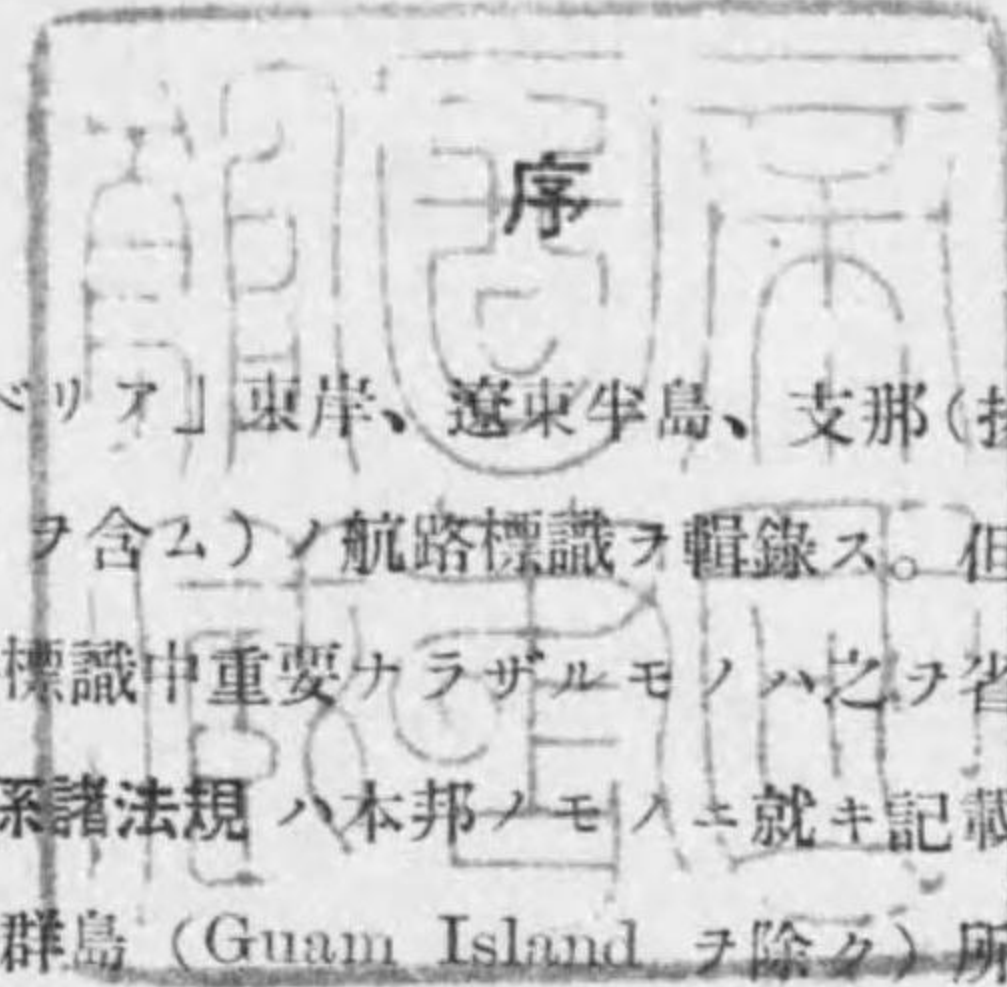 序
ベリア」東岸、遼東半島、支那(
ヲ含ム)ノ航路標識ヲ輯錄ス。但
標識中重要ナラザルモノハ之ヲ省
系諸法規 ハ本邦ノモノニ就キ記載
群島 (Guam Island ヲ除ク) 所